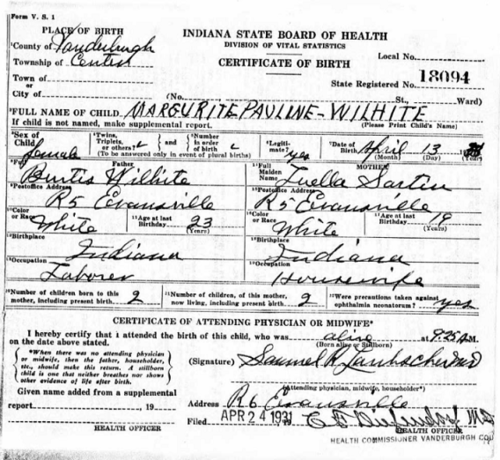 Form V. S. 1
INDIANA STATE BOARD OF HEALTH
PLACE OF BIRTH
DIVISION OF VITAL STATISTICS
County of Vanderburgh
Local No.
Township of Center
CERTIFICATE OF BIRTH
Town of or
State Registered No. 18094
City of (No. St., Ward)
FULL NAME OF CHILD MARGURITE PAULINE-WILHITE
If child is not named, make supplemental report. (Please Print Child's Name)
Sex of Child female Twins, Triplets, or others? Number in order of birth Legitimate? yes Date of Birth April 13
(To be answered only in event of plural births) (Month) (Day) (Year)
Full Father Full Maiden Name MOTHER
Burtis Wilhite Luella Sartin
Postoffice Address Postoffice Address
R5 Evansville R5 Evansville
Color or Race White Age at last Birthday 23 (Years) Color or Race White Age at last Birthday 19 (Years)
Birthplace Birthplace
Indiana Indiana
Occupation Occupation
Laborer Housewife
Number of children born to this mother, including present birth 2 Number of children, of this mother, now living, including present birth 2 Were precautions taken against ophthalmia neonatorum? yes
CERTIFICATE OF ATTENDING PHYSICIAN OR MIDWIFE*
I hereby certify that i attended the birth of this child, who was alive at 9:25 A.M.
on the date above stated. (Born alive or Stillborn)
*When there was no attending physician
or midwife, then the father, householder,
etc., should make this return. A stillborn
child is one that neither breathes nor shows
other evidence of life after birth.
(Signature) Samuel R.
(Attending physician, midwife, householder*)
Given name added from a supplemental
Address R6 Evansville
report , 19
Filed APR 24 1931
HEALTH OFFICER HEALTH OFFICER
HEALTH COMMISSIONER VANDERBURGH COU